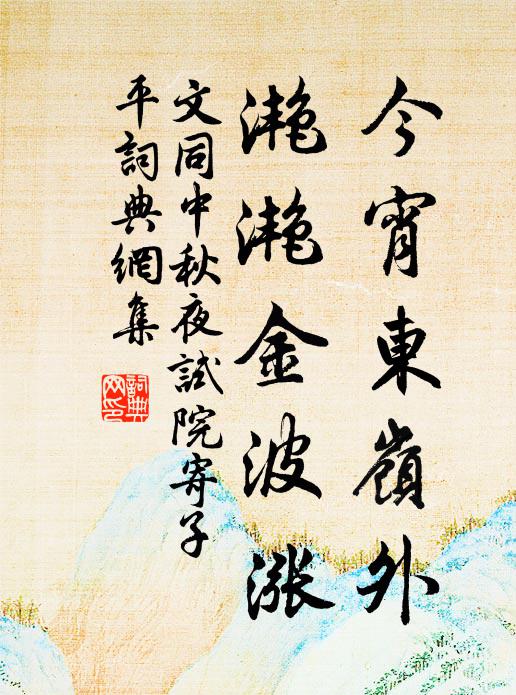 今宵東嶺外
灔灔金波漲
文同中秋夜試院寄子
平詞典網集
詞典
网印